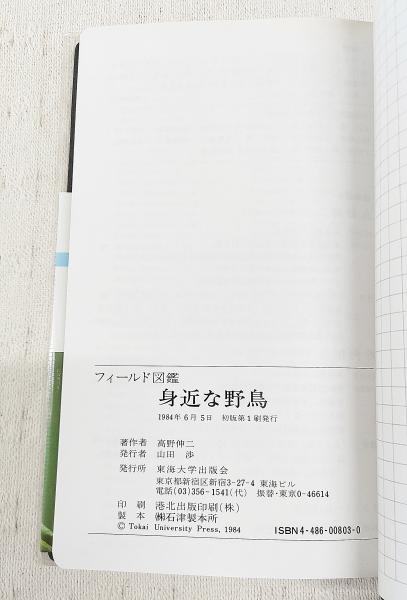 フィールド図鑑
身近な野鳥
1984年6月5日 初版第1刷発行
著作者 高野伸二
発行者 山田 渉
発行所 東海大学出版会
東京都新宿区新宿3-27-4 東海ビル
電話(03)356-1541(代) 振替・東京0-46614
印刷 港北出版印刷(株)
製本 ㈱石津製本所
© Tokai University Press, 1984
ISBN4-486-00803-0